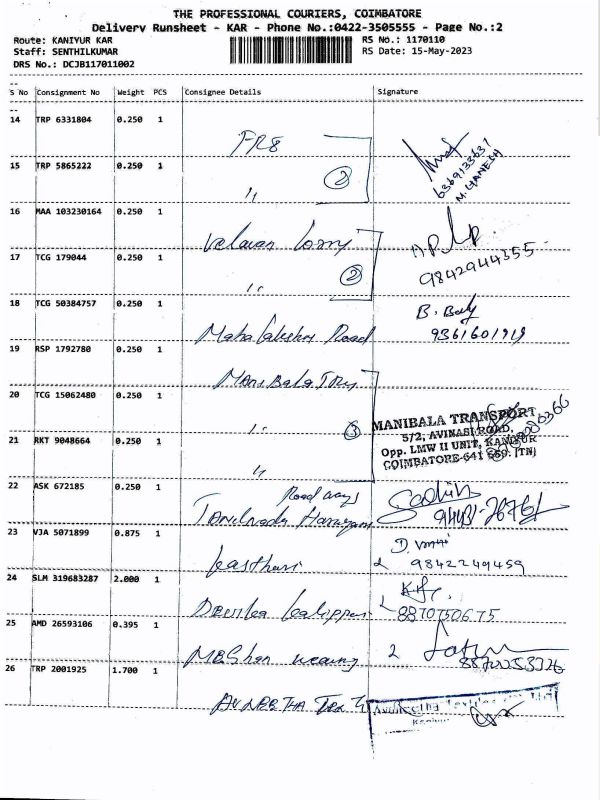 THE PROFESSIONAL COURIERS, COIMBATORE
Delivery Runsheet - KAR - Phone No.:0422-3505555 - Page No.:2
Route: KANIYUR KAR
RS No.: 1170110
Staff: SENTHILKUMAR
RS Date: 15-May-2023
DRS No.: DCJB117011002
S No Consignment No Weight PCS Consignee Details Signature
14 TRP 6331804 0.250 1
FR8
6369133637
M. GANESH
15 TRP 5865222 0.250 1
②
〃
16 MAA 103230164 0.250 1
Velavan Lorry
17 TCG 179044 0.250 1
9842944355
②
〃
18 TCG 50384757 0.250 1
B.
Mahalakshmi Road
9361601919
19 RSP 1792780 0.250 1
Manibala
20 TCG 15062480 0.250 1
〃
③
MANIBALA TRANSPORT
5/2, AVINASI ROAD,
Opp. LMW II UNIT, KANIYUR
COIMBATORE-641 659. (TN)
21 RKT 9048664 0.250 1
〃
22 ASK 672185 0.250 1
Road ways
Tamilnadu
23 VJA 5071899 0.875 1
Kasthuri
9842249459
24 SLM 319683287 2.000 1
8870750675
25 AMD 26593106 0.395 1
2
26 TRP 2001925 1.700 1
AVNEETHA TEX
Kaniyur